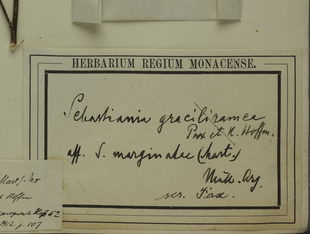 HERBARIUM REGIUM MONACENSE.
Sebastiania graciliramea
Pax et K. Hoffm.
aff. S. marginatae (Mart.)
Müll. Arg.
scr. Pax.
Mart.) Pax
Hoffm
1912. p. 107